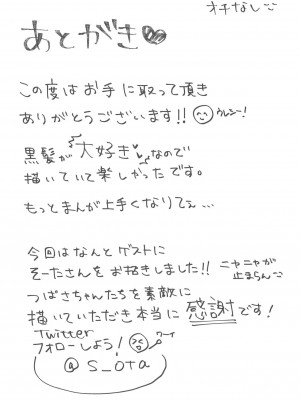 オチなし
あとがき♥
この度はお手に取って頂き
ありがとうございます!! ウレシー!
黒髪が大好き♥なので
描いていて楽しかったです。
もっとまんが上手くなりてぇ…
今回はなんとゲストに
そーたさんをお招きしました!! ニヤニヤが
止まらん
つばさちゃんたちを素敵に
描いていただき本当に感謝です!
Twitter
フォローしよう!
@S_OtA